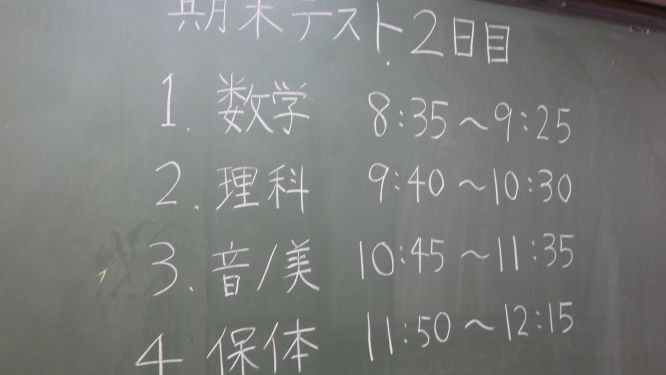 期末テスト 2日目
1. 数学 8:35～9:25
2. 理科 9:40～10:30
3. 音/美 10:45～11:35
4 保体 11:50～12:15